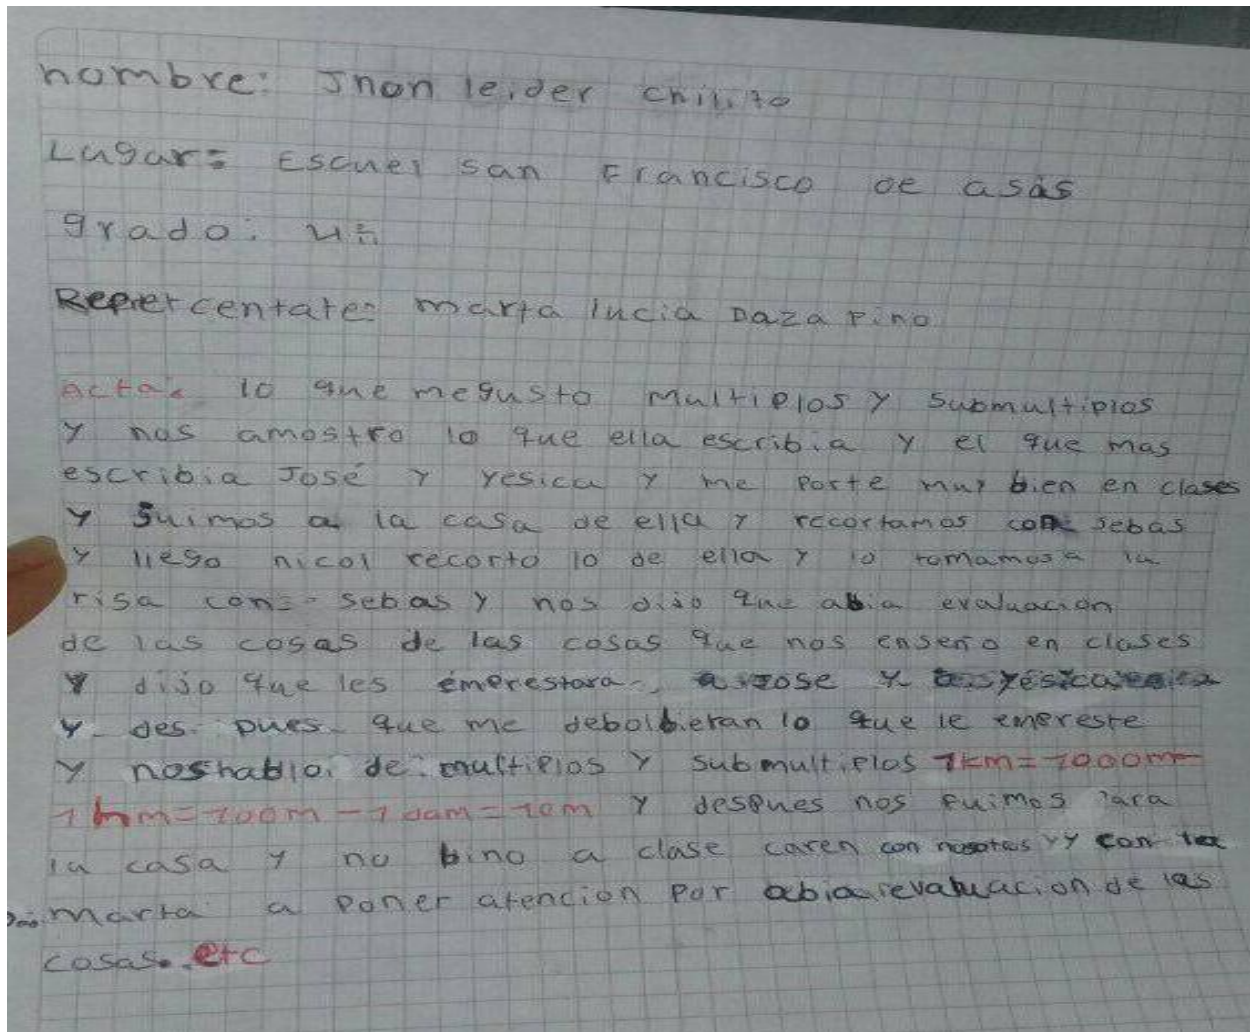 nombre: Jhon leider chilito
Lugar: Escuel san Francisco de asás
grado: 4
Reprercentate: marta lucia Daza Pino
acta: lo que megusto multiplos y submultiplos
y nos amostro lo que ella escribia y el que mas
escribia José y yesica y me porte muy bien en clases
y fuimos a la casa de ella y recortamos con sebas
y llego nicol recorto lo de ella y lo tomamos a la
risa con sebas y nos dijo que abia evaluacion
de las cosas de las cosas que nos enseño en clases
y dijo que les emprestara a jose y
y des pues que me debolbieran lo que le empreste
y noshablo de multiplos y submultiplos 1km=1000m-
1hm=100m-1dam=10m y despues nos fuimos para
la casa y no bino a clase caren con nosotros yy con
marta a poner atencion por abia evaluacion de las
cosas. etc